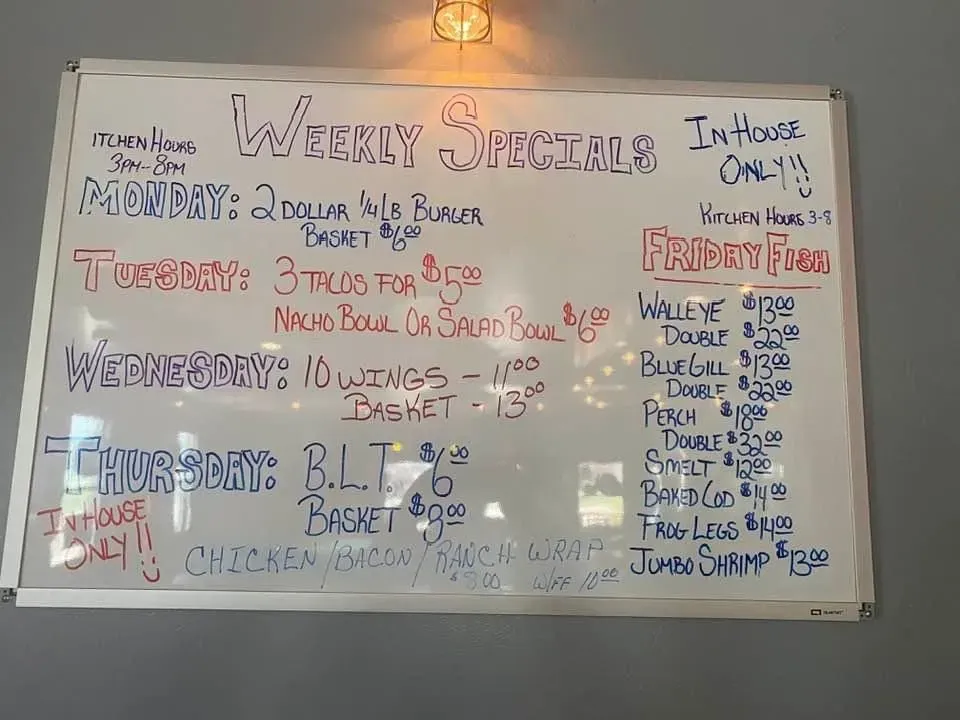 WEEKLY SPECIALS
ITCHEN HOURS
3PM-8PM
MONDAY: 2 DOLLAR 1/4 LB BURGER
BASKET $6.00
TUESDAY: 3 TACOS FOR $5.00
NACHO BOWL OR SALAD BOWL $6.00
WEDNESDAY: 10 WINGS - 11.00
BASKET - 13.00
THURSDAY: B.L.T. $6.00
BASKET $8.00
IN HOUSE
ONLY!!
CHICKEN/BACON/RANCH WRAP
$8.00 W/FF 10.00
IN HOUSE
ONLY!!
KITCHEN HOURS 3-8
FRIDAY FISH
WALLEYE $13.00
DOUBLE $22.00
BLUEGILL $13.00
DOUBLE $22.00
PERCH $18.00
DOUBLE $32.00
SMELT $12.00
BAKED COD $14.00
FROG LEGS $14.00
JUMBO SHRIMP $13.00